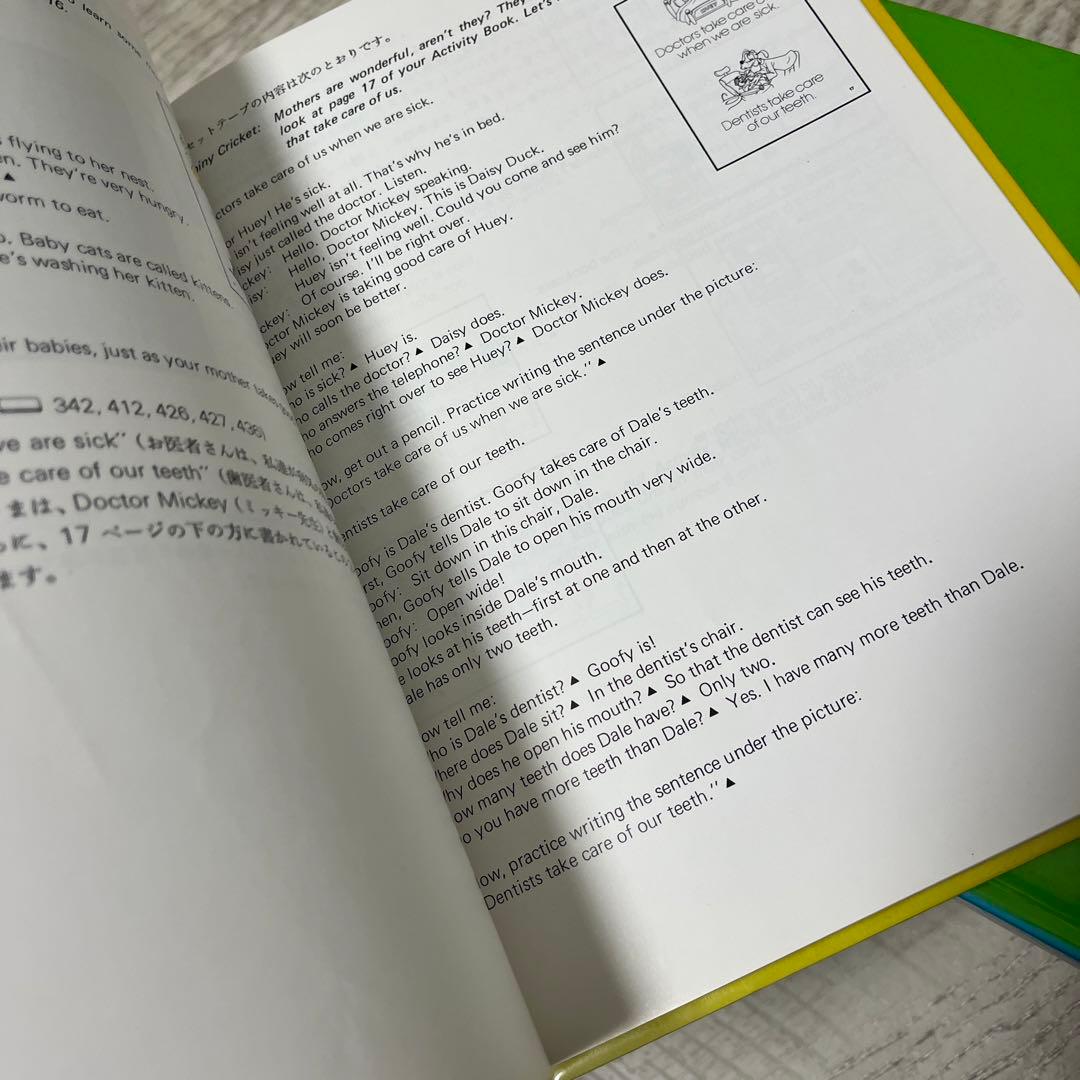 16.
learn some
flying to her nest.
They're very hungry.
▲
worm to eat.
Baby cats are called kittens.
washing her kitten.
babies, just as your mother takes
342, 412, 426, 427, 436)
are sick" (お医者さんは、私達が
care of our teeth" (歯医者さんは、
は、Doctor Mickey (ミッキー先生)
に、17 ページの下の方に書かれている
ます。
セットテープの内容は次のとおりです。
Cricket: Mothers are wonderful, aren't they? They
look at page 17 of your Activity Book. Let's
that take care of us.
take care of us when we are sick.
Huey! He's sick.
isn't feeling well at all. That's why he's in bed.
just called the doctor. Listen.
Hello. Doctor Mickey speaking.
Hello, Doctor Mickey. This is Daisy Duck.
Huey isn't feeling well. Could you come and see him?
Of course. I'll be right over.
Mickey is taking good care of Huey.
will soon be better.
tell me:
is sick? ▲ Huey is.
calls the doctor? ▲ Daisy does.
answers the telephone? ▲ Doctor Mickey.
comes right over to see Huey? ▲ Doctor Mickey does.
get out a pencil. Practice writing the sentence under the picture:
Doctors take care of us when we are sick." ▲
take care of our teeth.
is Dale's dentist. Goofy takes care of Dale's teeth.
Goofy tells Dale to sit down in the chair.
Sit down in this chair, Dale.
Goofy tells Dale to open his mouth very wide.
Open wide!
looks inside Dale's mouth.
looks at his teeth—first at one and then at the other.
has only two teeth.
tell me:
is Dale's dentist? ▲ Goofy is!
does Dale sit? ▲ In the dentist's chair.
does he open his mouth? ▲ So that the dentist can see his teeth.
many teeth does Dale have? ▲ Only two.
you have more teeth than Dale? ▲ Yes. I have many more teeth than Dale.
practice writing the sentence under the picture:
Dentists take care of our teeth." ▲
Doctors take care of
when we are sick.
Dentists take care
of our teeth.